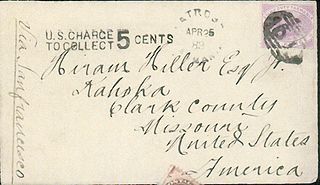 U.S. CHARGE
TO COLLECT 5 CENTS
APR 25
Via Sanfrancisco
Hiram Miller Esq Jr.
Kahoka
Clark County
Missouri
United States
America